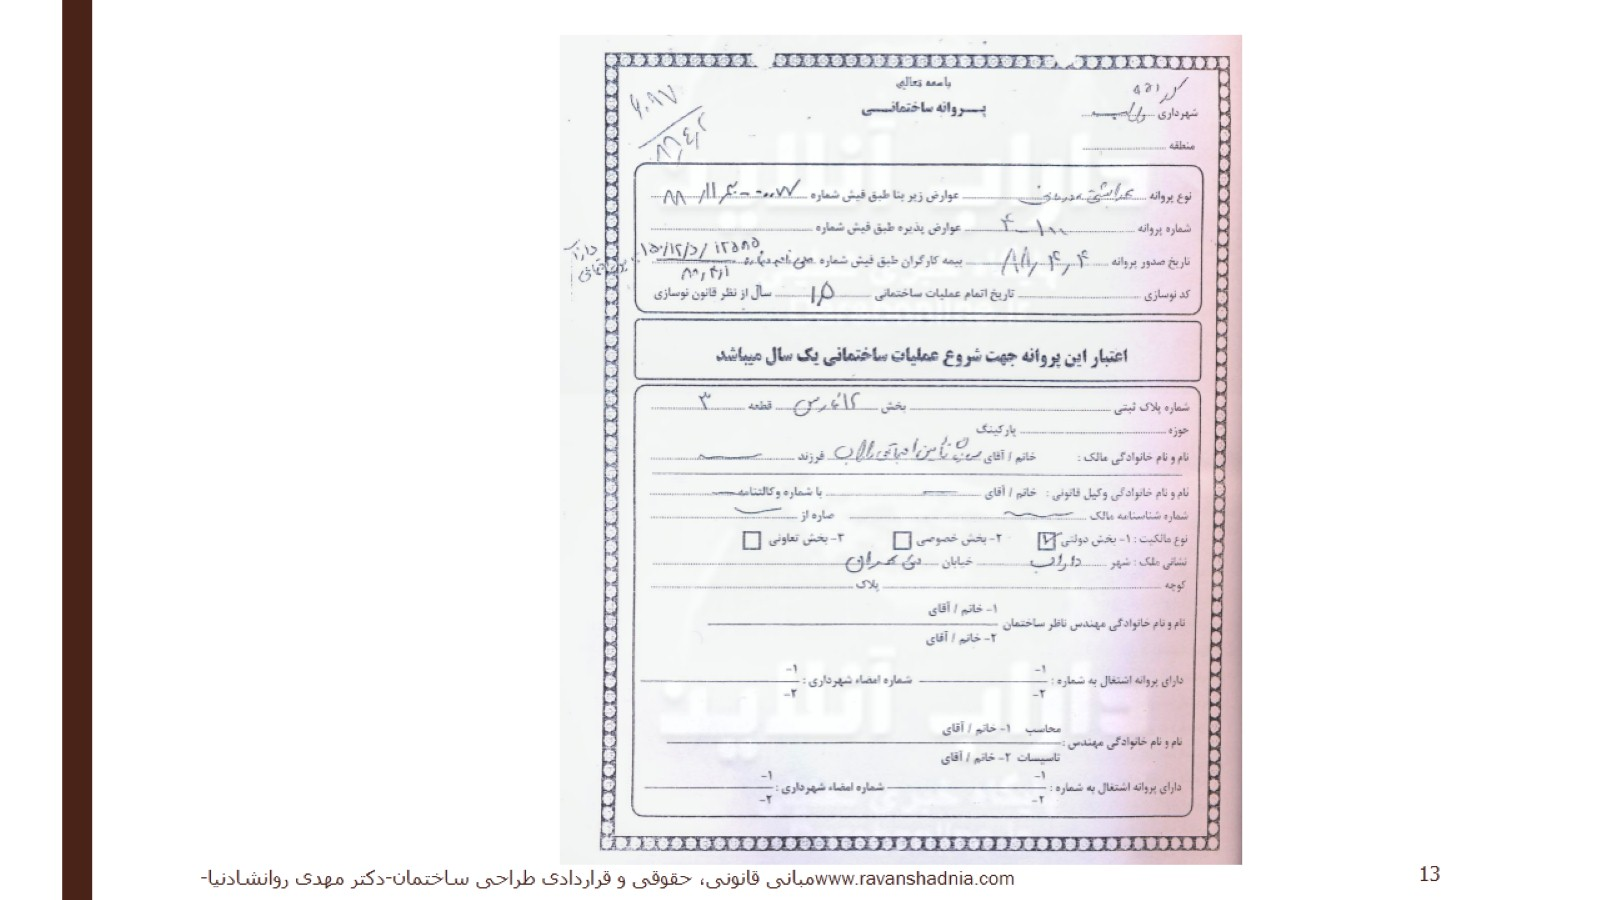 باسمه تعالی
پروانه ساختمانی
شهرداری داراب
منطقه
نوع پروانه عوارض زیر بنا طبق فیش شماره
شماره پروانه ۴۰۱۰۰ عوارض پذیره طبق فیش شماره
تاریخ صدور پروانه ۸۸٫۴٫۴ بیمه کارگران طبق فیش شماره
کد نوسازی تاریخ اتمام عملیات ساختمانی ۱۵ سال از نظر قانون نوسازی
اعتبار این پروانه جهت شروع عملیات ساختمانی یک سال میباشد
شماره پلاک ثبتی بخش ۱۲ فارس قطعه ۳
حوزه پارکینگ
نام و نام خانوادگی مالک : خانم / آقای تامین اجتماعی داراب فرزند
نام و نام خانوادگی وکیل قانونی : خانم / آقای با شماره وکالتنامه
شماره شناسنامه مالک صادره از
نوع مالکیت : ۱- بخش دولتی ۲- بخش خصوصی ۳- بخش تعاونی
نشانی ملک : شهر داراب خیابان
کوچه پلاک
۱- خانم / آقای
نام و نام خانوادگی مهندس ناظر ساختمان
۲- خانم / آقای
۱- ۱-
دارای پروانه اشتغال به شماره : شماره امضاء شهرداری :
۲- ۲-
محاسب ۱- خانم / آقای
نام و نام خانوادگی مهندس :
تاسیسات ۲- خانم / آقای
۱- ۱-
دارای پروانه اشتغال به شماره : شماره امضاء شهرداری :
۲- ۲-
مبانی قانونی، حقوقی و قراردادی طراحی ساختمان-دکتر مهدی روانشادنیا-www.ravanshadnia.com
13